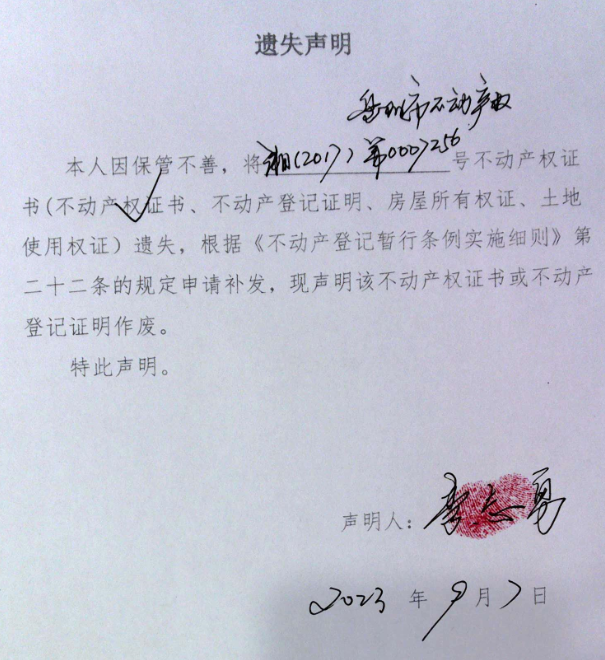 遗失声明
市不动产权
本人因保管不善，将湘(2017)第0007256号不动产权证
书(不动产权证书、不动产登记证明、房屋所有权证、土地
使用权证）遗失，根据《不动产登记暂行条例实施细则》第
二十二条的规定申请补发，现声明该不动产权证书或不动产
登记证明作废。
特此声明。
声明人：李志勇
2023 年 9 月 7 日